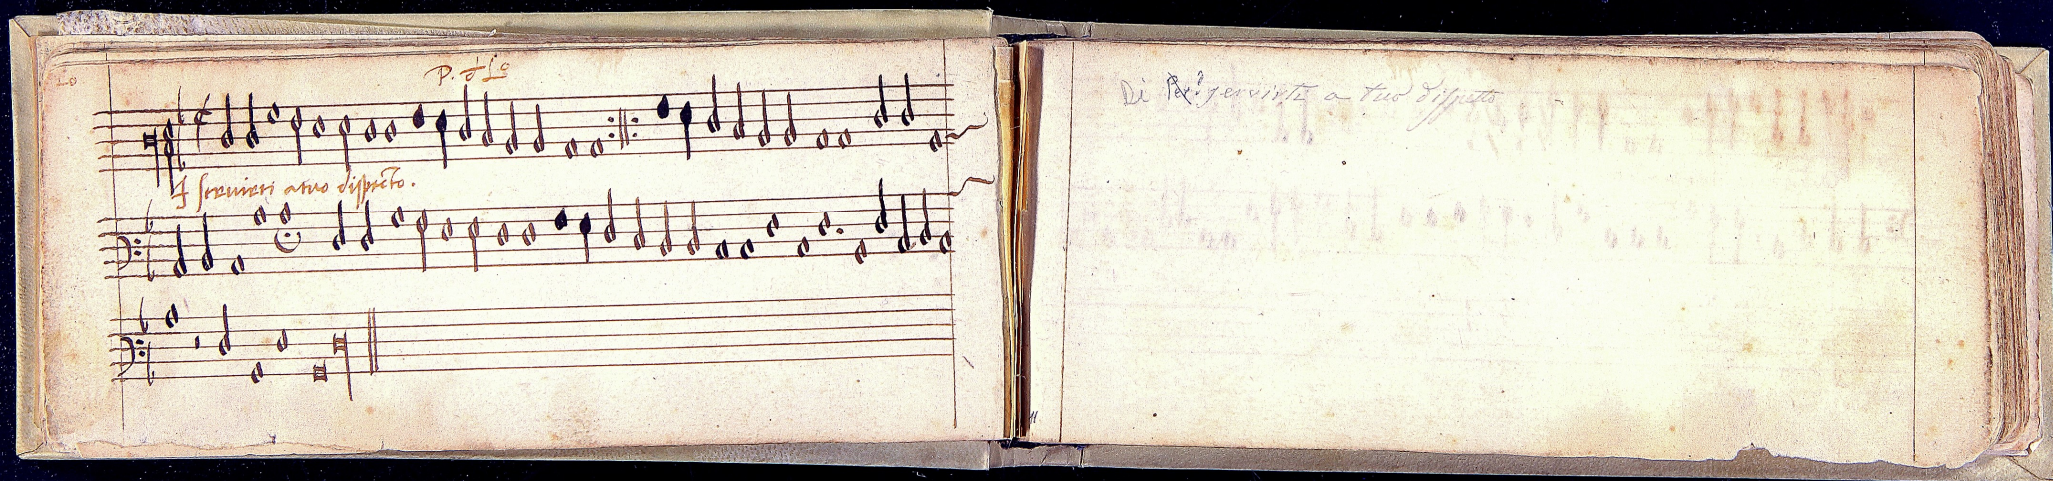 P. d Lo
servirti a tuo dispecto.
Di servirti a tuo dispetto
11